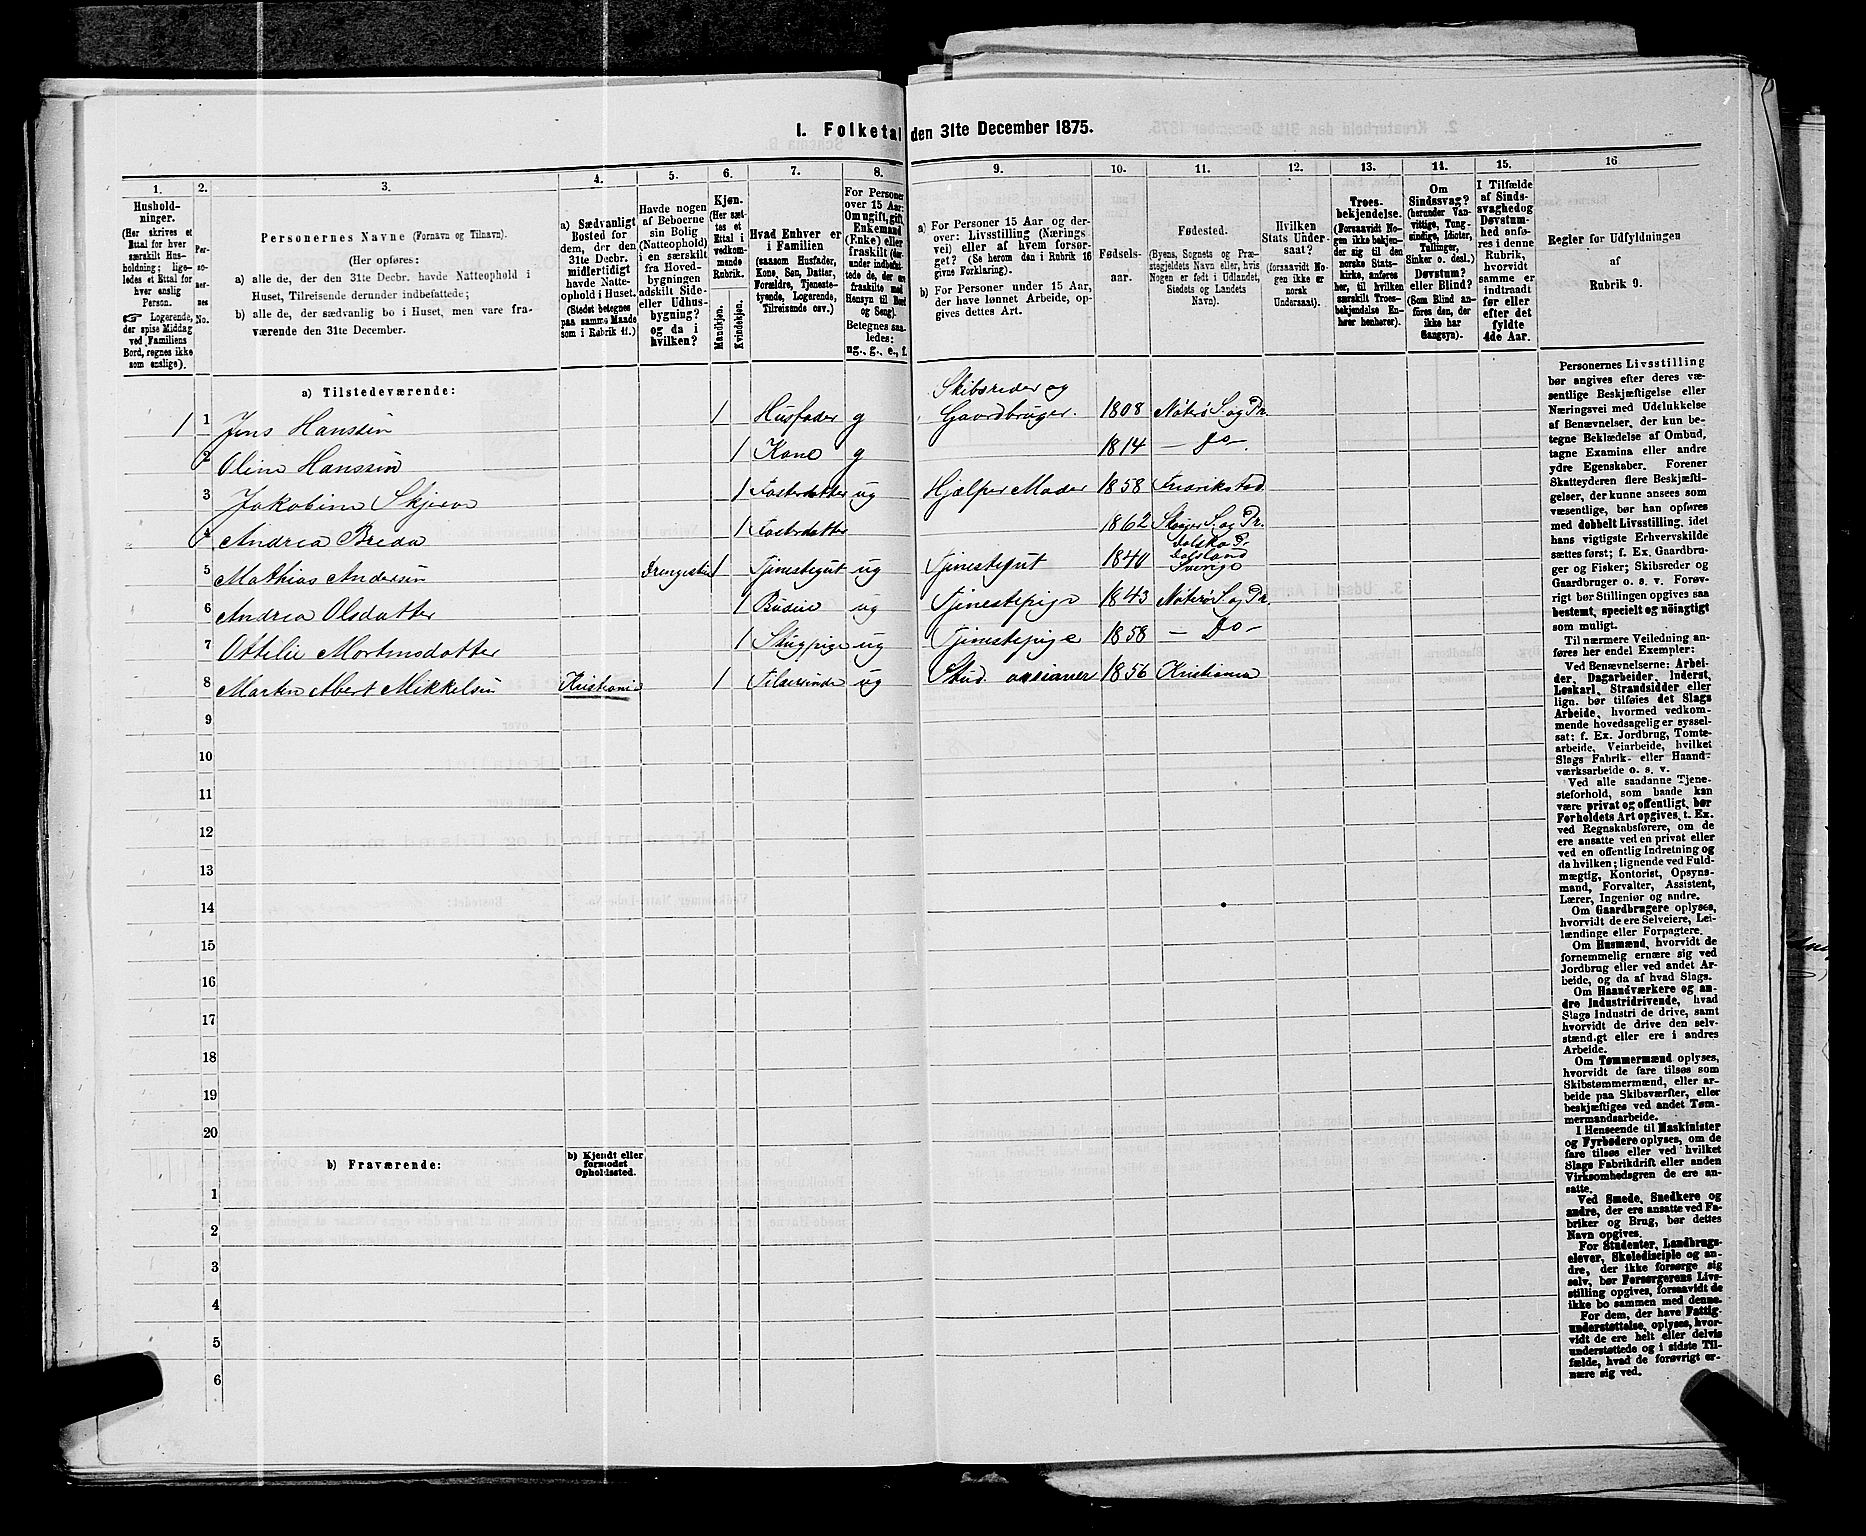 I. Folketal den 31te December 1875.
1.
2.
3.
4.
5.
6.
7.
8.
9.
10.
11.
12.
13.
14.
15.
16
Hushold-
ninger.
(Her skrives et
Ettal for hver
særskilt Hus-
holdning; lige-
ledes et Ettal for
hver enslig
Person.
☞ Logerende,
der spise Middag
ved Familiens
Bord, regnes ikke
som enslige).
Per-
so-
ner-
nes
No.
Personernes Navne (Fornavn og Tilnavn).
(Her opføres:
a) alle de, der den 31te Decbr. havde Natteophold i
Huset, Tilreisende derunder indbefattede;
b) alle de, der sædvanlig bo i Huset, men vare fra-
værende den 31te December.
a) Sædvanligt
Bosted for
dem, der den
31te Decbr.
midlertidigt
havde Natte-
ophold i Huset.
(Stedet betegnes
paa samme Maade
som i Rubrik 11.)
Havde nogen
af Beboerne
sin Bolig
(Natteophold)
i en særskilt
fra Hoved-
bygningen
adskilt Side-
eller Udhus-
bygning?
og da i
hvilken?
Kjøn.
(Her sæt-
tes et
Ettal i
vedkom-
mende
Rubrik.
Mandkjøn.
Kvindekjøn.
Hvad Enhver er
i Familien
(saasom Husfader,
Kone, Søn, Datter,
Forældre, Tjeneste-
tyende, Logerende,
Tilreisende osv.)
For Personer
over 15 Aar:
Om ugift, gift,
Enkemand
(Enke) eller
fraskilt (der-
under indbefat-
tede de, der ere
fraskilte med
Hensyn til Bord
og Seng).
Betegnes saa-
ledes:
ug., g., e., f.
a) For Personer 15 Aar og der-
over: Livsstilling (Nærings-
vei) eller af hvem forsør-
get? (Se herom den i Rubrik 16
givne Forklaring).
b) For Personer under 15 Aar,
der have lønnet Arbeide, op-
gives dettes Art.
Fødsels-
aar.
Fødested.
(Byens, Sognets og Præ-
stegjeldets Navn eller, hvis
Nogen er født i Udlandet,
Stedets og Landets
Navn).
Hvilken
Stats Under-
saat?
(forsaavidt No-
gen ikke er
norsk
Undersaat).
Troes-
bekjendelse.
(Forsaavidt No-
gen ikke bekjen-
der sig til den
norske Stats-
kirke, anføres
her, til hvilken
særskilt Troes-
bekjendelse En-
hver henhører).
Om
Sindssvag?
(herunder Van-
vittige, Tung-
sindige, Idioter,
Tullinger,
Sinker o. desl.)
Døvstum?
eller Blind?
(Som Blind an-
føres den, der
ikke har
Gangsyn).
I Tilfælde
af Sinds-
svaghed og
Døvstum-
hed anfø-
res i denne
Rubrik,
hvorvidt
samme er
indtraadt
før eller
efter det
fyldte
4de Aar.
Regler for Udfyldningen
af
Rubrik 9.
a) Tilstedeværende:
1 1 Jens Hanssen 1 Husfader g Skibsreder og
Gaardbruger. 1808 Nøterø S. og Pr.
2 Oline Hanssen 1 Kone g 1814 — Do —
3 Jakobine Skjerve 1 Fosterdatter ug Hjælper Moder 1858 Fredrikstad
4 Andrea Breda 1 Fosterdatter 1862 Skoger S. og Pr.
5 Mathias Andersen Drengestue 1 Tjenestegut ug Tjenestegut 1840 Dalsko Pr.
Dalsland
Sverige
6 Andrea Olsdatter 1 Budeie ug Tjenestepige 1843 Nøterø S. og Pr.
7 Ottilie Mortensdatter 1 Stuepige ug Tjenestepige 1858 — Do —
8 Martin Abert Mikkelsen Kristiania 1 Tilreisende ug Stud. 1856 Kristiania
9
10
11
12
13
14
15
16
17
18
19
20
b) Fraværende:
b) Kjendt eller
formodet
Opholdssted.
1
2
3
4
5
6
Personernes Livsstilling
bør angives efter deres væ-
sentlige Beskjæftigelse eller
Næringsvei med Udelukkelse
af Benævnelser, der kun be-
tegne Beklædelse af Ombud,
tagne Examina eller andre
ydre Egenskaber. Forener
Skatteyderen flere Beskjæfti-
gelser, der kunne ansees som
væsentlige, bør han opføres
med dobbelt Livsstilling, idet
hans vigtigste Erhvervskilde
sættes først; f. Ex. Gaardbru-
ger og Fisker; Skibsreder og
Gaardbruger o. s. v. Forøv-
rigt bør Stillingen opgives saa
bestemt, specielt og nöiagtigt
som muligt.
Til nærmere Veiledning an-
føres her endel Exempler:
Ved Benævnelserne: Arbei-
der, Dagarbeider, Inderst,
Løskarl, Strandsidder eller
lign. bør tilføies det Slags
Arbeide, hvormed vedkom-
mende hovedsagelig er syssel-
sat; f. Ex. Jordbrug, Tomte-
arbeide, Veiarbeide, hvilket
Slags Fabrik- eller Haand-
værksarbeide o. s. v.
Ved alle saadanne Tjene-
steforhold, som baade kan
være privat og offentligt, bør
Forholdets Art opgives, t. Ex.
ved Regnskabsførere, om de
ere ansatte ved en privat eller
ved en offentlig Indretning og
da hvilken; lignende ved Fuld-
mægtig, Kontorist, Opsyns-
mand, Forvalter, Assistent,
Lærer, Ingeniør og andre.
Om Gaardbrugere oplyses,
hvorvidt de ere Selveiere, Lei-
lændinge eller Forpagtere.
Om Husmænd, hvorvidt de
fornemmelig ernære sig ved
Jordbrug eller ved andet Ar-
beide, og da af hvad Slags.
Om Haandværkere og an-
dre Industridrivende, hvad
Slags Industri de drive, samt
hvorvidt de drive den selv-
stænd.gt eller ere i andres
Arbeide.
Om Tømmermænd oplyses,
hvorvidt de fare tilsøs som
Skibstømmermænd, eller ar-
beide paa Skibsværfter, eller
beskjæftiges ved andet Tøm-
mermandsarbeide.
I Henseende til Maskinister
og Fyrbødere oplyses, om de
fare tilsøs eller ved hvilket
Slags Fabrikdrift eller anden
Virksomhedsgren de ere an-
satte.
Ved Smede, Snedkere og
andre, der ere ansatte ved Fa-
briker og Brug, bør dettes
Navn opgives.
For Studenter, Landbrugs-
elever, Skoledisciple og an-
dre, der ikke forsørge sig
selv, bør Forsørgerens Livs-
stilling opgives, forsaavidt de
ikke bo sammen med denne.
For dem, der have Fattig-
understøttelse, oplyses, hvor-
vidt de ere helt eller delvis
understøttede og i sidste Til-
fælde, hvad de forøvrigt er-
nære sig ved.